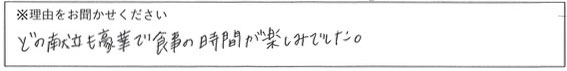 ※理由をお聞かせください
どの献立も豪華で食事の時間が楽しみでした。